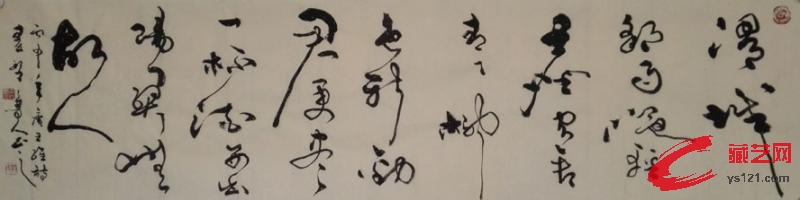 渭城
朝雨浥轻
尘客舍
青々柳
色新劝
君更尽
一杯酒西出
阳关无
故人
丙申年唐王维诗
藏艺网
ys121.com